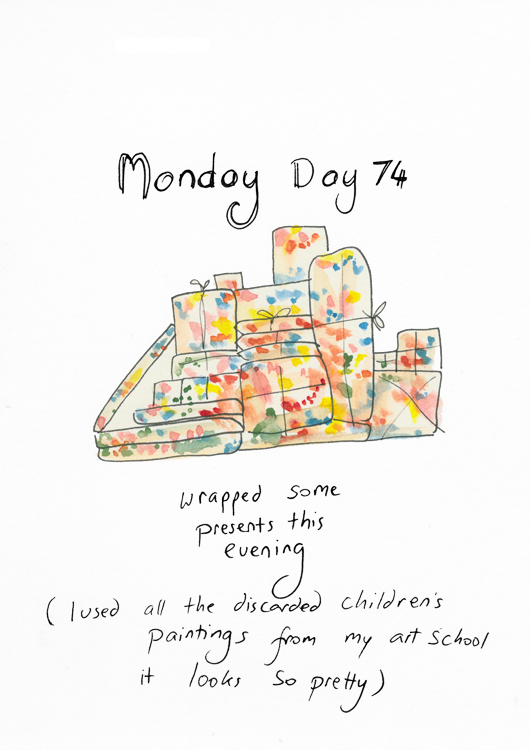 Monday Day 74
wrapped some
presents this
evening
(I used all the discarded children's
paintings from my art school
it looks so pretty)